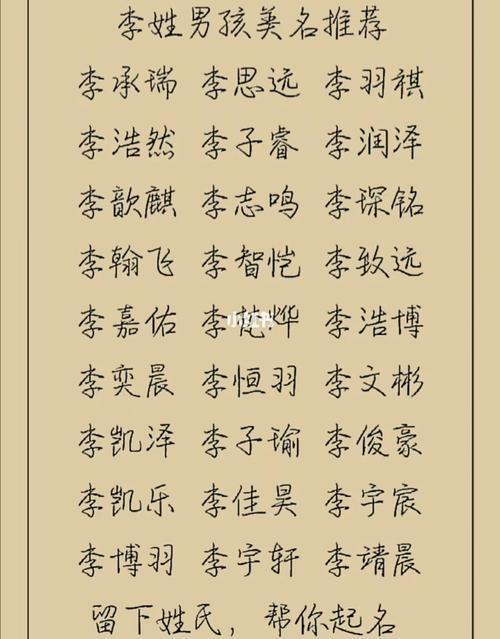 李姓男孩美名推荐
李承瑞 李思远 李羽祺
李浩然 李子睿 李润泽
李歆麒 李志鸣 李琛铭
李翰飞 李智恺 李致远
李嘉佑 李梵烨 李浩博
李奕晨 李恒羽 李文彬
李凯泽 李子瑜 李俊豪
李凯乐 李佳昊 李宇宸
李博羽 李宇轩 李靖晨
留下姓氏，帮你起名